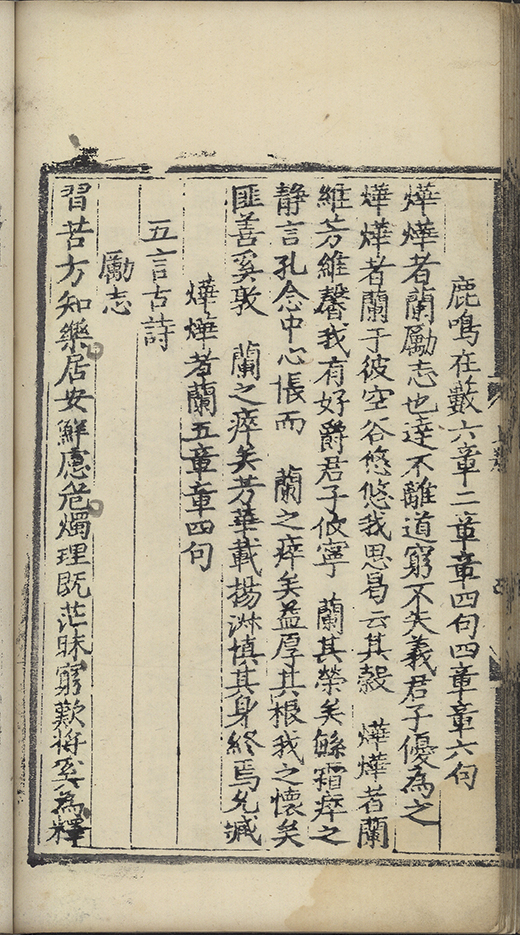 鹿鳴在藪六章二章章四句四章章六句
燁燁者蘭勵志也達不離道窮不失義君子優為之
燁燁者蘭于彼空谷悠悠我思曷云其穀　燁燁者蘭
維芳維馨我有好爵君子攸寧　蘭其榮矣繇霜瘁之
靜言孔念中心悵而　蘭之瘁矣益厚其根我之懷矣
匪善奚敦　蘭之瘁矣芳華載揚淋慎其身終焉允臧
燁燁者蘭五章章四句
五言古詩
勵志
習苦方知樂居安鮮慮危燭理既茫昧窮歎將奚為釋